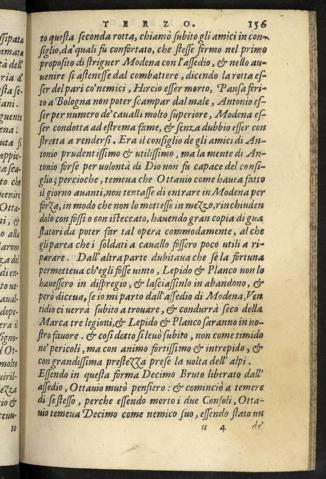 TERZO. 156
to questa seconda rotta, chiamò subito gli amici in con-
siglio, da' quali fu confortato, che stesse fermo nel primo
proposito di strigner Modena con l'assedio, & nello au-
uenire si astenesse dal combattere, dicendo la rotta es-
ser del pari co'nemici, Hircio esser morto, Pansa feri-
to a Bologna non poter scampar dal male, Antonio es-
ser per numero de' caualli molto superiore, Modena es-
ser condotta ad estrema fame, & senza dubbio esser con
stretta a rendersi. Era il consiglio de gli amici di An-
tonio prudentissimo & utilissimo, ma la mente di An-
tonio forse per uolontà di Dio non fu capace del consi-
glio; percioche, temeua che Ottauio come haueа fatto
il giorno auanti, non tentasse di entrare in Modena per
forza, in modo che non lo mettesse in mezzo, rinchiuden
dolo con fossi o con isteccato, hauendo gran copia di gua
statori da poter far tal opera commodamente, al che
gli parea che i soldati a cauallo fossero poco utili a ri-
parare. Dall'altra parte dubitaua che se la fortuna
permetteua ch'egli fosse uinto, Lepido & Planco non lo
hauessero in dispregio, & lasciassinlo in abandono, &
però diceua, se io mi parto dall'assedio di Modena, Ven
tidio ci uerrà subito a trouare, & condurrà seco della
Marca tre legioni, & Lepido & Planco saranno in no-
stro fauore. & così detto si leuò subito, non come timido
ne' pericoli, ma con animo fortissimo & intrepido, &
con grandissima prestezza prese la uolta dell'alpi.
Essendo in questa forma Decimo Bruto liberato dall'
assedio, Ottauio mutò pensiero: & cominciò a temere
di se stesso, perche essendo morti i due Consoli, Otta-
uio temeua Decimo come nemico suo, essendo stato un
u 4 de'